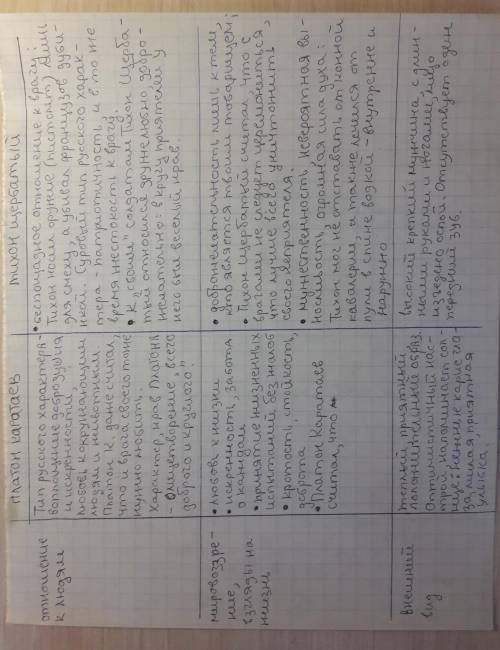 Платон Каратаев
Тихон Щербатый
отношение
к людям
Тип русского характера -
воплощение добродушия
и искренности.
Любовь к окружающим
людям и животным.
Платон К. даже считал,
что и врага своего тоже
нужно любить.
Характер, нрав Платона
- олицетворение „всего
доброго и круглого"
• беспощадное отношение к врагу:
Тихон носил оружие (пистолет) лишь
для смеху, а убивал французов дуби-
нкой. Суровый тип русского харак-
тера - патриотичность и в то же
время жестокость к врагу.
• К „своим" солдатам Тихон Щерба-
тый относился дружелюбно, добро-
желательно: в кругу приятелей у
него был веселый нрав.
мировоззре-
ние,
взгляды на
жизнь
• любовь к жизни
• искренность, забота
о каждом
• принятие жизненных
испытаний без жалоб
• кротость, стойкость,
доброта
• Платон Каратаев
считал, что
• доброжелательность лишь к тем,
кто является твоим товарищем;
• Тихон Щербатый считал, что с
врагами не следует церемониться,
что лучше всего уничтожить
своего неприятеля.
• мужественность, невероятная вы-
носливость, огромная сила духа:
Тихон мог не отставать от конной
кавалерии, а также лечился от
пули в спине водкой - внутренне и
наружно
внешний
вид
тёплый, приятный
положительный образ.
Оптимистичный нас-
трой напоминает сол-
нце: нежные карие гла-
за, милая, приятная
улыбка,
высокий крепкий мужчина с длин-
ными руками и ногами, лицо
изъедено оспой. Отсутствует один
передний зуб.